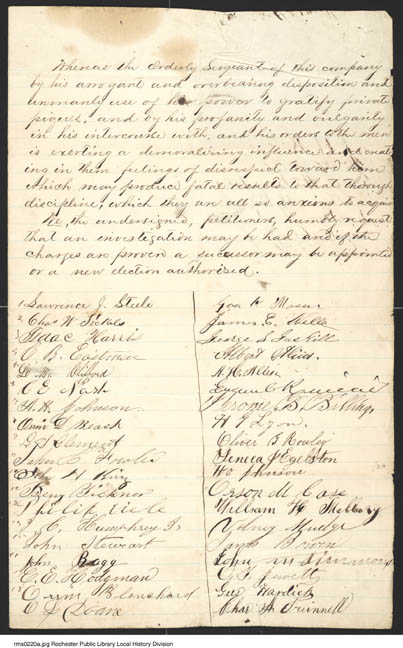 Whereas the Orderly Sergeant of this company
by his arrogant and overbearing disposition and
unmanly use of his power to gratify private
pique, and by his profanity and vulgarity
in his intercourse with, and his orders to the men
is exerting a demoralizing influence and creat
ing in them feelings of disrespect toward him
which may produce fatal results to that thorough
discipline, which they are all so anxious to acquire
We, the undersigned, petitioners, humbly request
that an investigation may be had and if the
charges are proven a successor may be appointed
or a new election authorized.
Lawrence J. Steele
Chas W
Isaac Harris
O. B. Eastman
C E Nash
H. W. Johnson
D. Beach
Clement
John Fowler
H King
Benj Ticknor
Philip
J. E. Humphrey Jr
John Stewart
John Bagg
E. E. Hodgman
Orrin Blanchard
C S Doane
Geo H Mason
James E.
George S Gaskill
Albert
H. C. Allen
Jerome B.
H J Lyon
Oliver B Rowley
Seneca J Egelston
Wo Johnson
Orson M. Case
William H
Sydney Mudge
James Brown
John
Jewett
Geo
Chas A Quinnell
rms0220a.jpg Rochester Public Library Local History Division